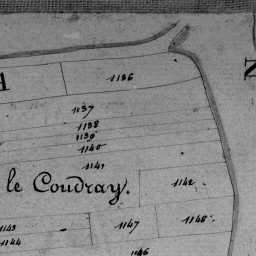 1136
1137
1138
1139
1140
1141
le Coudray.
1142
1143
1144
1147
1148
1146
N